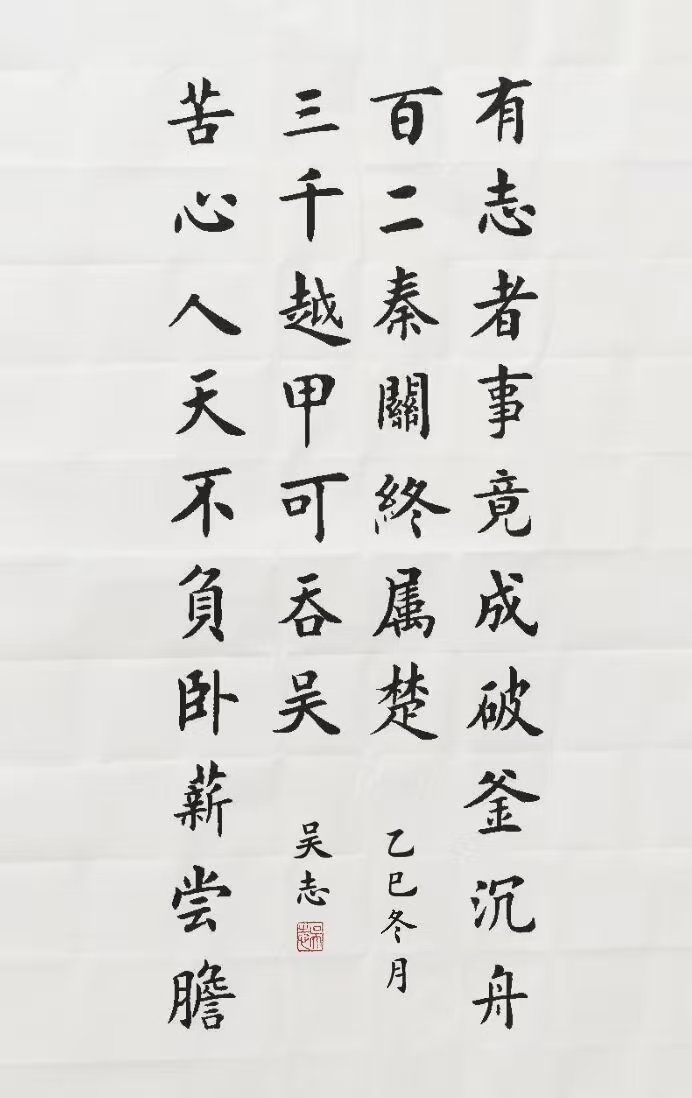 有志者事竟成破釜沉舟
百二秦關終属楚
苦心人天不負卧薪尝膽
三千越甲可吞吴
乙巳冬月
吴志
吴志